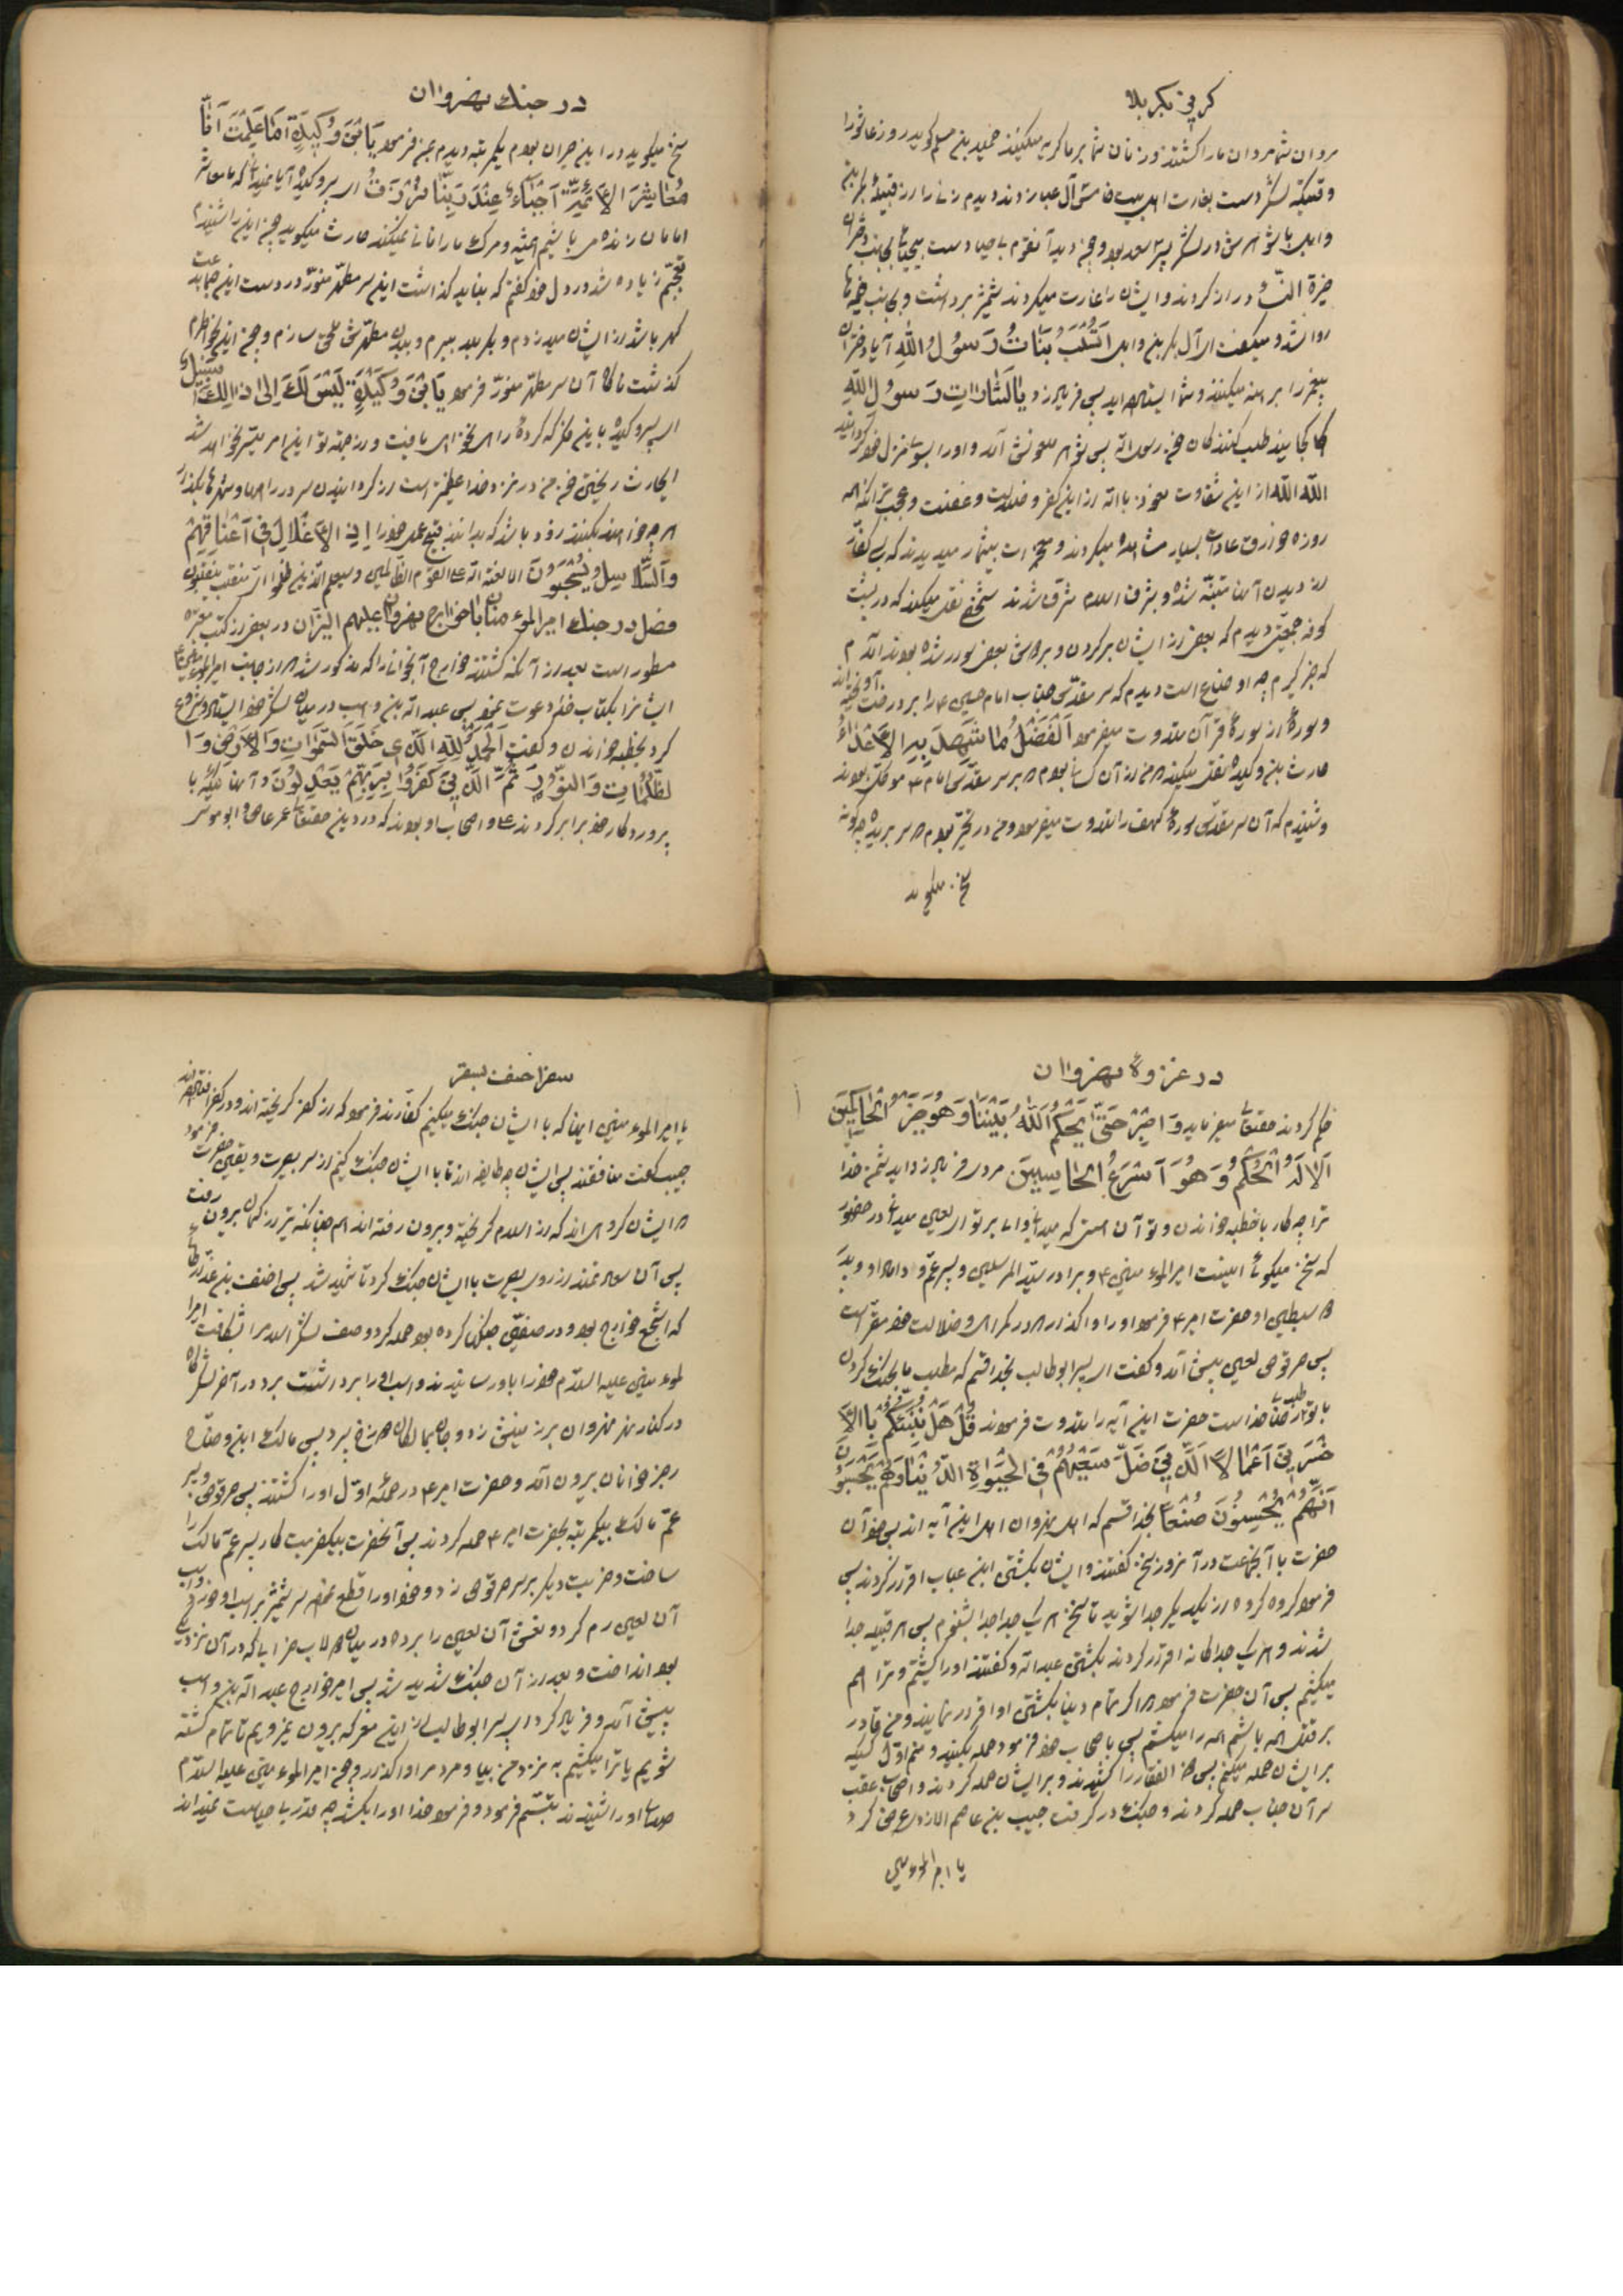 گریهٔ بکربلا
مردان شما مردان ما را کشتند و زنان شما بر ما گریه میکنند حمید بن مسلم گوید در روز عاشورا
وقتیکه لشکر دست بغارت اهل بیت آل عبا زدند دیدم زنی را از قبیلهٔ بکر بن
وایل با شوهرش در لشکر پسر سعد بود چون دید آنقوم بی حیا دست بیحیائی بجانب دختران
خیرة النسا دراز کردند و ایشان را غارت میکردند شمشیر برداشت و بجانب خیمه ها
روا شد و میگفت ای آل بکر بن وایل اَتُسْلَبُ بَنَاتُ رَسُولِ اللهِ آیا دختران
پیغمبر را برهنه میکنند و شما ایستاده اید پس فریاد زد یا لَثَارَاتِ رَسُولِ اللهِ
کجایند طلب کنندگان خون رسول الله پس شوهر ملعونش آمد و او را بسوی منزل خود گردانید
الله الله از این شقاوت نعوذ بالله از این کفر و ضلالت و غفلت و عجب تر آنکه
روزه خوارق عادات بسیار مشاهده میکردند و معجزات بیشمار میدیدند که بسی کفار
از دیدن آنها متنبه شده و بشرف اسلام مشرف شدند شخصی نقل میکند که در پشت
کوفه جمعیتی دیدم که بعضی از ایشان بر گردن و بر دوش بعضی سوار شده بودند آمدم
که خبر گیرم چه اوضاع است دیدم که سر مقدس جناب امام حسین ع را بر درخت آویخته اند
و سورهٔ از سورهٔ قرآن تلاوت میفرمود اَلْفَضْلُ مَا شَهِدَ بِهِ الْاَعْدَاءُ
حارث بن وکیده نقل میکند که من از آن کسانی بودم که بر سر مقدس امام ع موکل بودند
و شنیدم که آن سر مقدس سورهٔ کهف را تلاوت میفرمود و من در تحیر بودم که سر بریده چگونه
سخن میگوید
در جنگ نهروان
سخن میگوید در این حیران بودم یکمرتبه دیدم بمن فرمود یَابْنَ وُکَیْدَةِ اَمَا عَلِمْتَ اَنَّا
مَعَاشِرَ الْاَئِمَّةِ اَحْیَاءٌ عِنْدَ رَبِّنَا نُرْزَقُ ای پسر وکیده آیا نمیدانی که ما معاشر
امامان زنده می باشیم همیشه و مرگ ما را فانی نمیکند حارث میگوید چون این را شنیدم
تعجبم زیاده شد در دل خود گفتم که نباید گذاشت این سر مطهر منور در دست این جماعت
گذشت ناگاه آن سر مطهر منور فرمود یَابْنَ وُکَیْدَةِ لَیْسَ لَکَ اِلٰی ذٰالِکَ سَبِیْلٌ
ای پسر وکیده باین فکر که کردهٔ راه نخواهی یافت و از جهة تو این امر میسر نخواهد شد
ای حارث ریختن خون من در نزد خدا عظیم تر است از گردانیدن سر در راهها و شهرها بگذار
هر چه خواهند بکنند زود باشد که بدانند قبح عمل خود را اِذِ الْاَغْلَالُ فِی اَعْنَاقِهِمْ
وَالسَّلَاسِلُ یُسْحَبُونَ الا لعنة الله علی القوم الظالمین وسیعلم الذین ظلموا ای منقلب ینقلبون
فصل در جنگ امیرالمؤمنان با خوارج نهروان علیهم النیران در بعضی از کتب معتبره
مسطور است بعد از آنکه کشتند خوارج آنجوانی را که مذکور شد از جانب امیرالمؤمنین ع
ایشان را بکتاب خدا دعوت نمود پس عبدالله بن وهب در میان لشکر خود ایستاد و شروع
کرد بخطبه خواندن و گفت اَلْحَمْدُ لِلّٰهِ الَّذِی خَلَقَ السَّمٰوَاتِ وَالْاَرْضَ وَا
لظُّلُمَاتِ وَالنُّورَ ثُمَّ الَّذِینَ کَفَرُوا بِرَبِّهِمْ یَعْدِلُونَ و آنها دیگر با
پروردگار خود برابر کردند علی و اصحاب او بودند که در دین حقتعالی عمرعاص و ابوموسی
در غزوهٔ نهروان
حکم کردند حقتعالی میفرماید وَاصْبِرْ حَتّٰی یَحْکُمَ اللهُ بَیْنَنَا وَهُوَ خَیْرُ الْحَاکِمِینَ
اَلَا لَهُ الْحُکْمُ وَهُوَ اَسْرَعُ الْحَاسِبِینَ مردی فریاد زد ای دشمن خدا
ترا چه کار با خطبه خواندن و تو آن هستی که میدانی وای بر تو ای لعین میدانی در حضور
که سخن میگوئی اینست امیرالمؤمنین ع و برادر سید المرسلین و پسر عم و داماد او و پدر
سبطین او حضرت امیر ع فرمود او را واگذارید در گمراهی و ضلالت خود مقر است
پس حرقوص لعین پیش آمد و گفت ای پسر ابوطالب بخدا قسم که مطلب ما بجنگ کردن
با تو طلب رضای خداست حضرت این آیه را تلاوت فرمودند قُلْ هَلْ نُنَبِّئُکُمْ بِالْاَ
خْسَرِینَ اَعْمَالًا اَلَّذِینَ ضَلَّ سَعْیُهُمْ فِی الْحَیٰوةِ الدُّنْیَا وَهُمْ یَحْسَبُونَ
اَنَّهُمْ یُحْسِنُونَ صُنْعًا بخدا قسم که اهل نهروان اهل این آیه اند پس چون آن
حضرت با آنجماعت در آنروز سخن گفتند و ایشان بکشتن ابن خباب اقرار کردند پس
فرمود گروه گروه از یکدیگر جدا شوید تا سخن هر یک جدا جدا بشنوم پس هر قبیله جدا
شدند و هر یک جداگانه اقرار کردند بکشتن عبدالله و گفتند او را کشتیم و ترا هم
میکشیم پس آن حضرت فرمود که اگر تمام دنیا بکشتن او اقرار نمایند و من قادر
بر قتل همه باشم همه را میکشم پس باصحاب خود فرمود حمله بکنید و منم اول کسیکه
بر ایشان حمله میکنم پس ذوالفقار را کشیدند و بر ایشان حمله کردند و اصحاب عقب
سر آن جناب حمله کردند و جنگ در گرفت حبیب بن عاصم الازدی عرض کرد
یا امیرالمؤمنین
یا امیرالمؤمنین اینها که با ایشان جنگ میکنیم کفارند فرمود که از کفر گریخته اند و در کفر افتاده اند
حبیب گفت منافقند پس ایشان چه طایفه اند تا با ایشان جنگ کنیم از سر بصیرت و یقین حضرت فرمود
ایشان گروهی اند که از اسلام گریخته و بیرون رفته اند همچنانکه تیر از کمان بیرون رفت
پس آن سعادتمند از روی بصیرت با ایشان جنگ کرد تا شهید شد پس اخنف بن
که اشجع خوارج بود و در صفین جنگی کرده بود حمله کرد و صف لشکر اسلام را شکافت امیرا
لمؤمنین علیه السلام خود را باو رسانیدند و اسب او را برداشت برد در آخر لشکرگاه
رجز خوانان بیرون آمد و حضرت امیر ع در حملهٔ اول او را کشتند پس حرقوص و پسر
عم مالک بیکمرتبه بحضرت امیر ع حمله کردند پس آنحضرت بیکضربت کار پسر عم مالک را
ساخت و ضربت دیگر بر سر حرقوص زد و خود او را قطع نموده سر شمشیر بر اسب او خورد
آن لعین رم کرد و نعش آن لعین را برده در میان دولاب خرابه که در آن نزدیکی
بود انداخت و بعد از آن جنگ شدید شد پس امیر خوارج عبدالله بن وهب
پیش آمد و فریاد کرد ای پسر ابوطالب از این معرکه بیرون نمیرویم تا تمام کشته
شویم یا ترا بکشیم به نزد من بیا و مردم را واگذار چون امیرالمؤمنین علیه السلام
صدای او را شنیدند تبسم فرمود و فرمود خدا او را بکشد چه قدر بی حیاست نمیداند